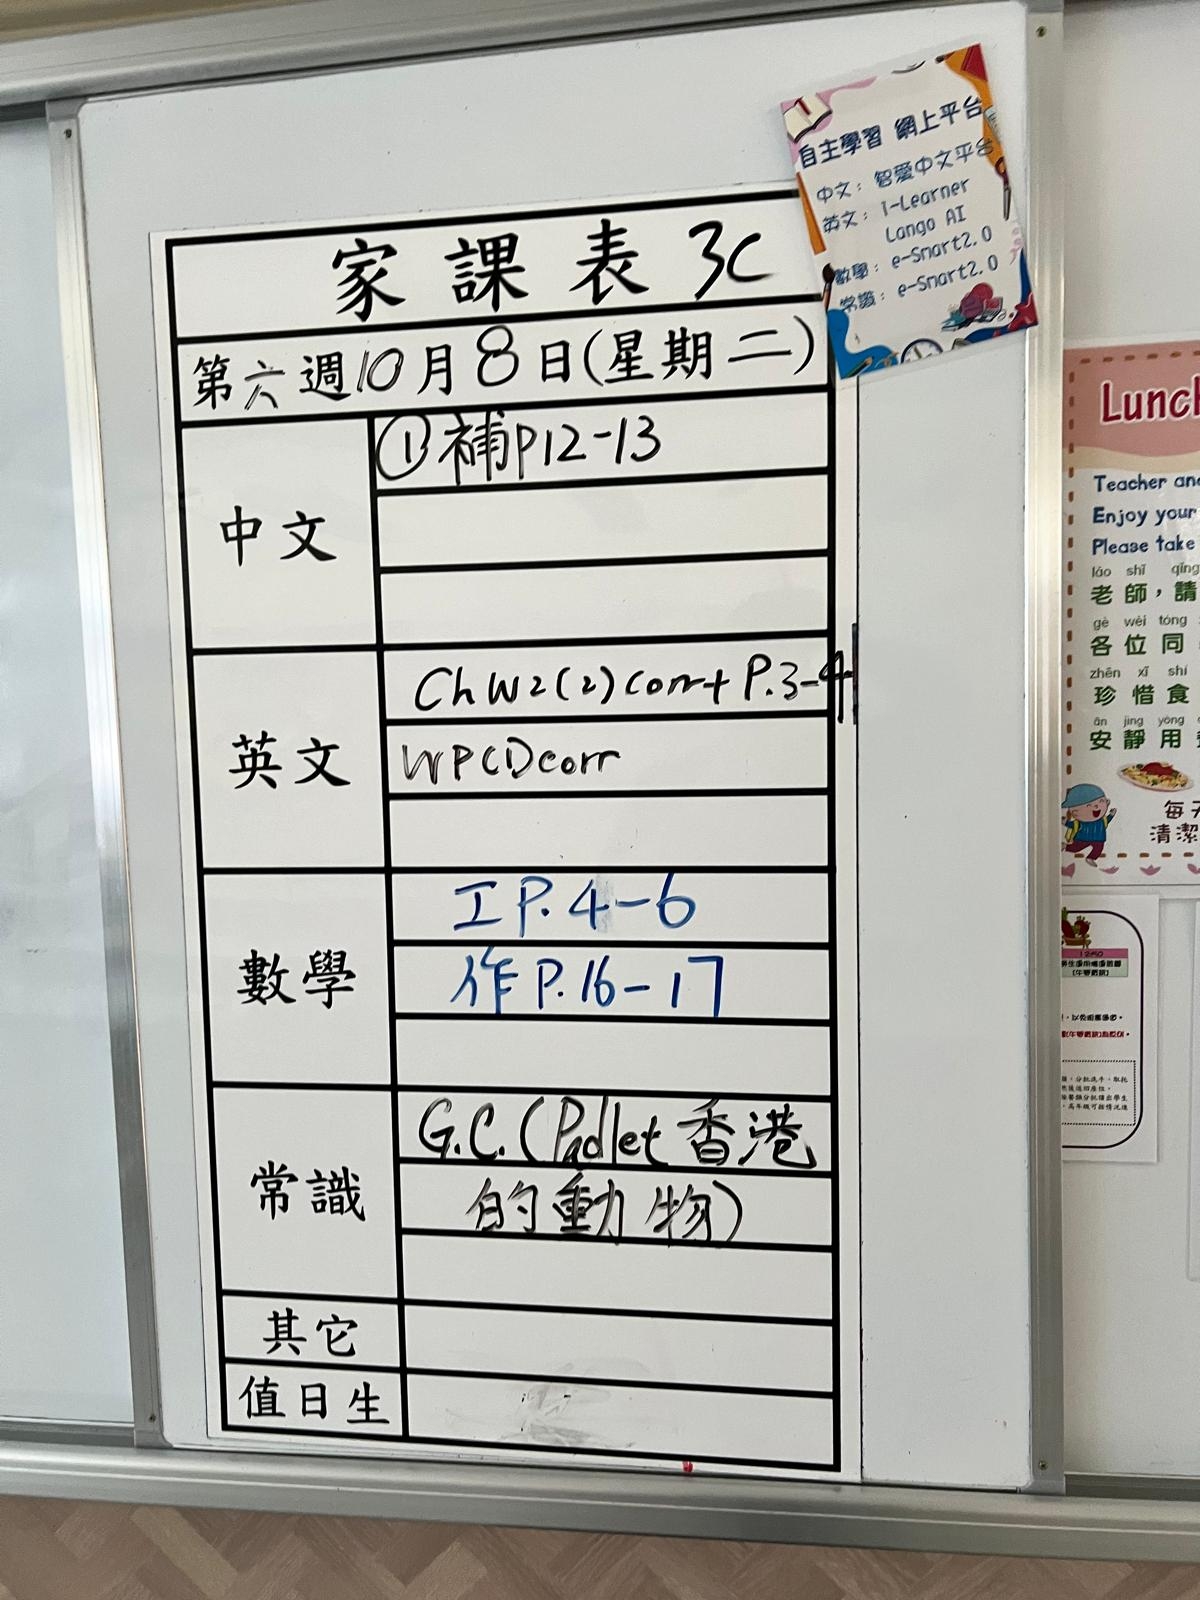 家課表 3C
第六週10月8日(星期二)
中文
①補P12-13
英文
Ch W2(2)corr+ P.3-4
WP(1)corr
數學
工P.4-6
作P.16-17
常識
G.C.(Padlet 香港
的動物)
其它
值日生
自主學習 網上平台
中文: 智愛中文平台
英文: i-Learner
Lango AI
數學: e-Smart2.0
常識: e-Smart2.0
Lunch
Teacher and
Enjoy your
Please take
lǎo shī qǐng
老師,請
gè wèi tóng
各位同
zhēn xī shí
珍惜食
ān jìng yòng
安靜用
每天
清潔